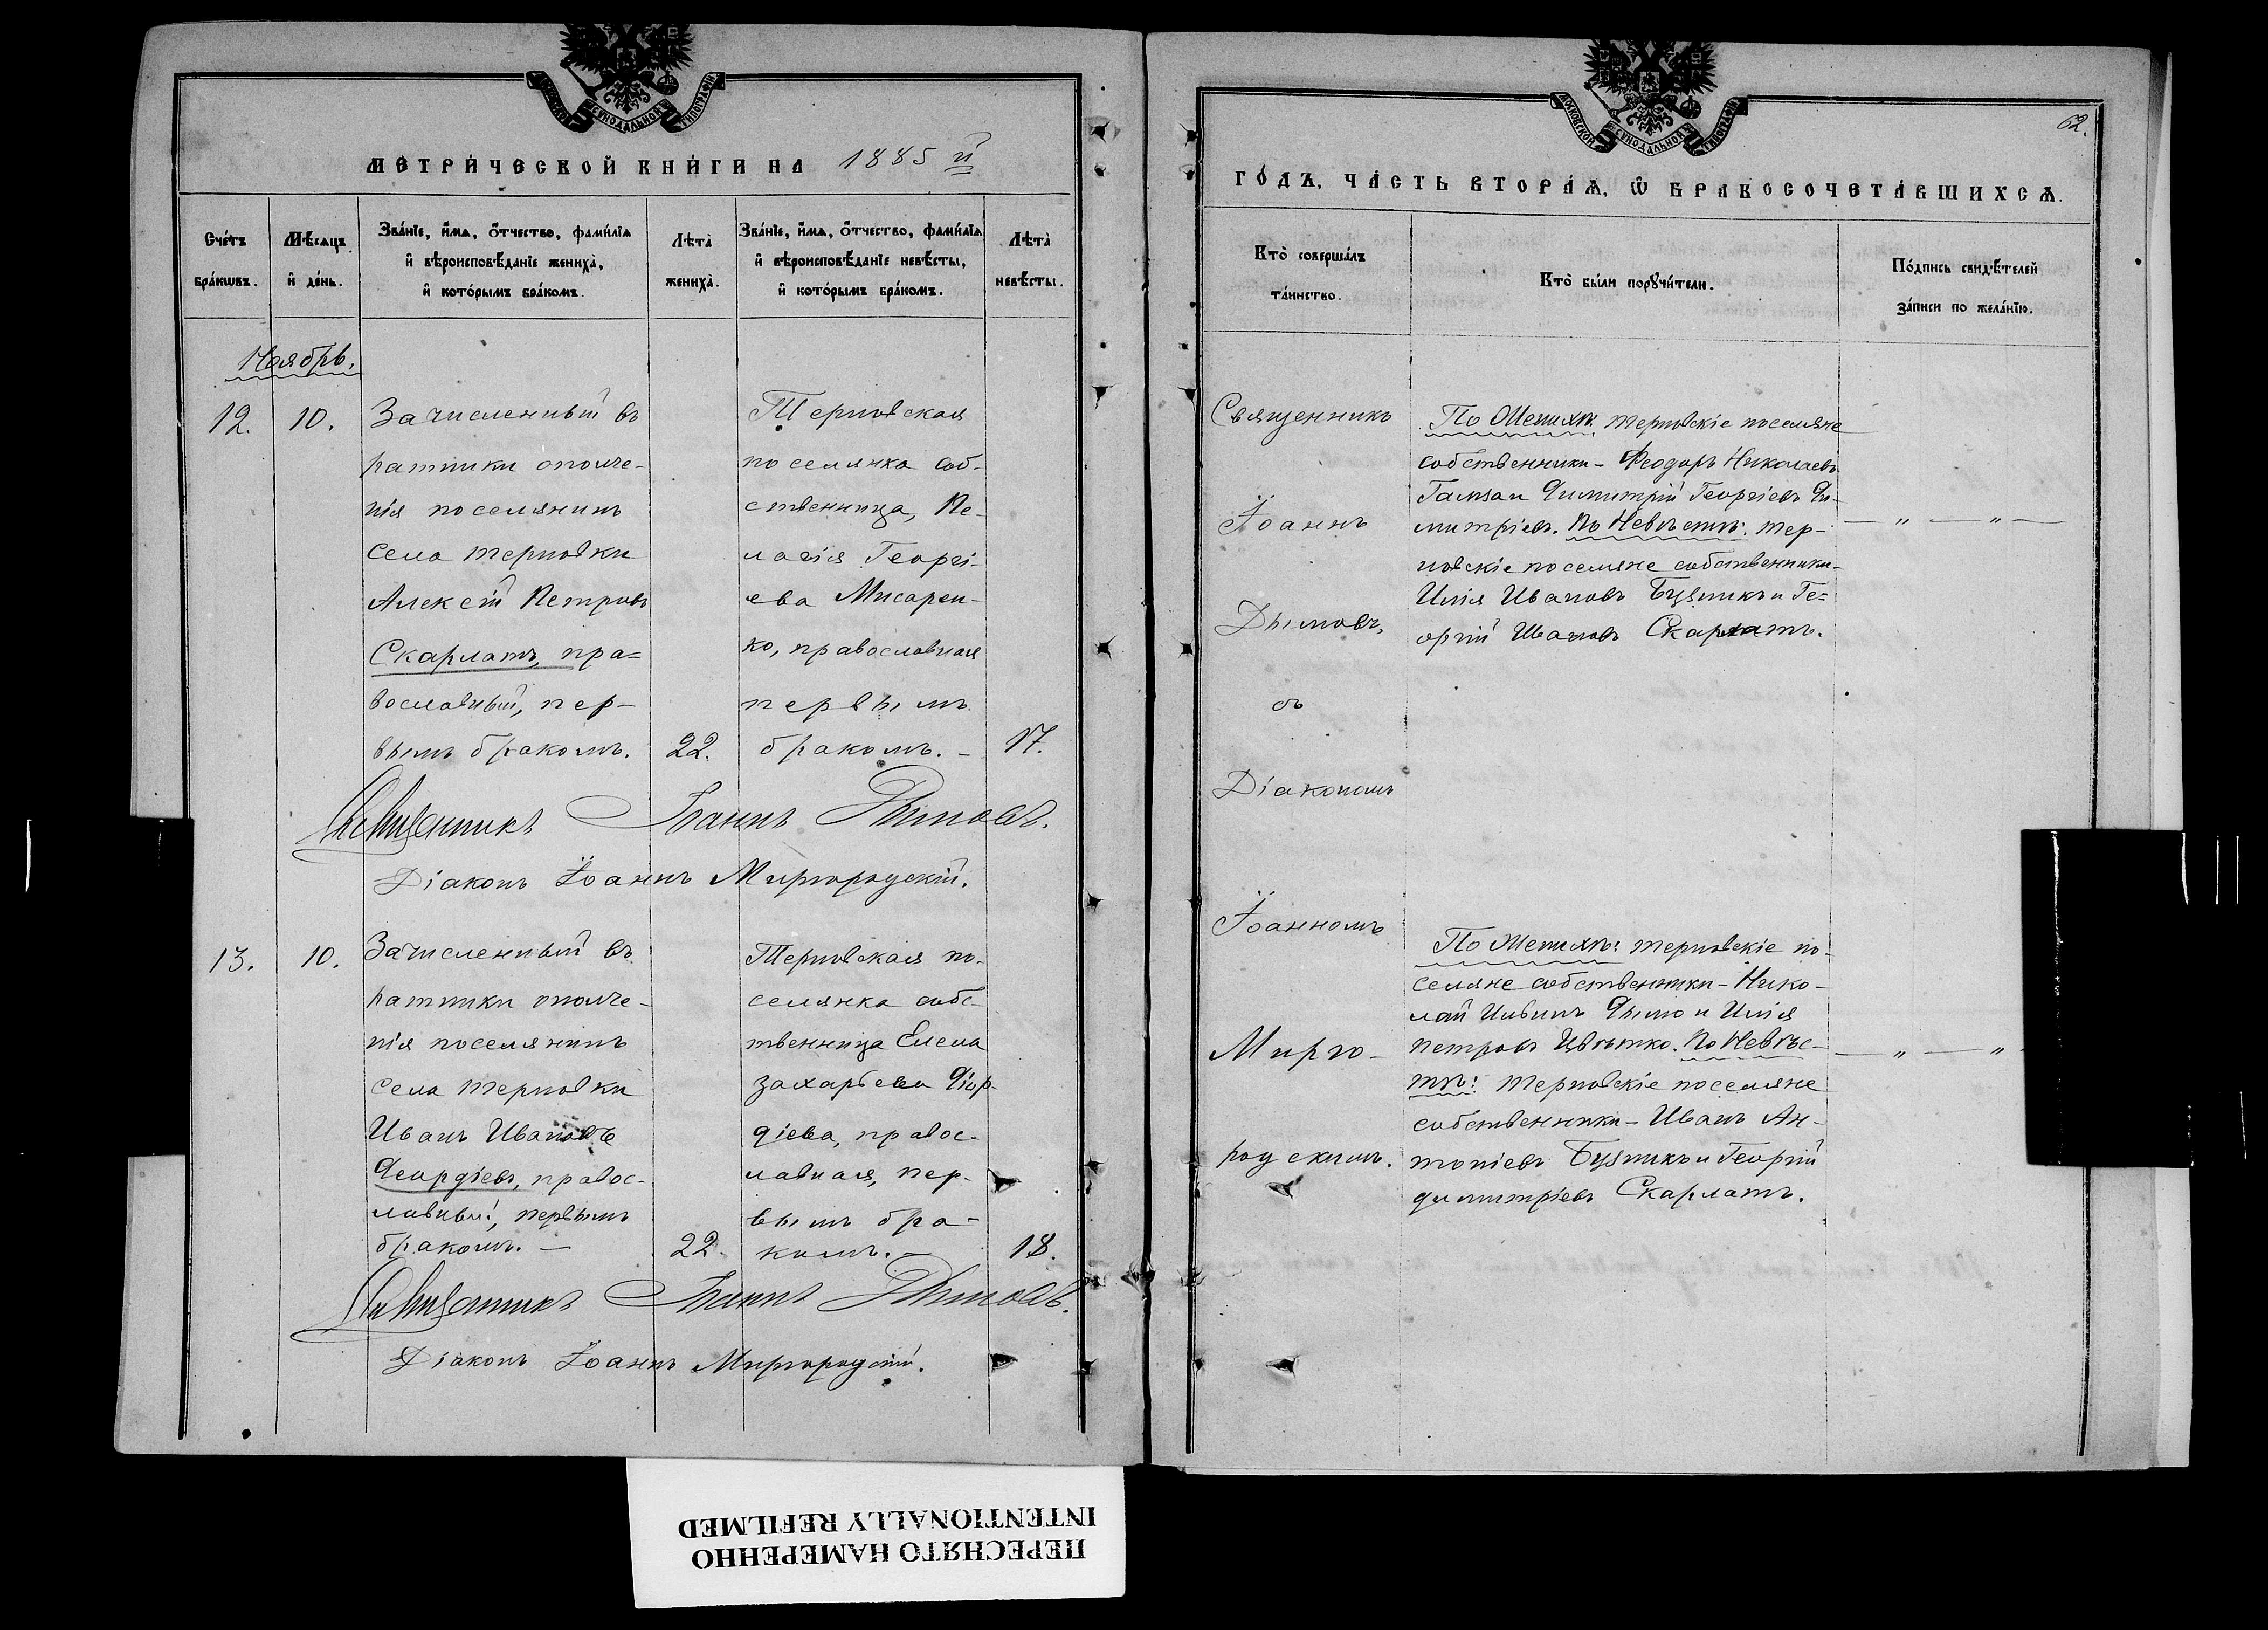 МЕТРИ́ЧЕСКОЙ КНИ́ГИ НА 1885 й
Сче́тъ бра́кωвъ.
Мѣ́сяцъ и҆ де́нь.
Зва́нїе, и҆́мѧ, ѻ҆́тчество, фами́лїѧ и҆ вѣроисповѣ́данїе женихà, и҆ кото́рымъ бра́комъ.
Лѣтà женихà.
Зва́нїе, и҆́мѧ, ѻ҆́тчество, фами́лїѧ и҆ вѣроисповѣ́данїе невѣ́сты, и҆ кото́рымъ бра́комъ.
Лѣтà невѣ́сты.
Ноябрь.
12.
10.
Зачисленный въ
ратники ополче-
нія поселянинъ
села Терновки
Алексѣй Петровъ
Скарлатъ, пра=
вославный, пер-
вымъ бракомъ.
22.
Терновская
поселянка соб-
ственница, Пе-
лагія Георгі-
ева Писарен-
ко, православная
первымъ
бракомъ. -
17.
Священникъ Іоаннъ Дымовъ.
Діаконъ Іоаннъ Миргородскій.
13.
10.
Зачисленный въ
ратники ополче-
нія поселянинъ
села Терновки
Иванъ Ивановъ
Ѳеордіевъ, правос-
лавный, первымъ
бракомъ. —
22.
Терновская по-
селянка собс-
твенница Елена
Захарьева Фіор-
діева, правос-
лавная, пер-
вымъ бра-
комъ. —
18.
Священникъ Іоаннъ Дымовъ.
Діаконъ Іоаннъ Миргородскій.
62.
ГО́ДЪ, ЧА́СТЬ ВТОРА́Ѧ, Ѽ БРАКОСОЧЕТА́ВШИХСѦ.
Кто̀ соверша́лъ та́инство.
Кто̀ бы́ли порꙋчи́тели.
По́дпись свидѣ́телей за́писи по жела́нїю.
Священникъ
Іоаннъ
Дымовъ,
съ
Діакономъ
Іоанномъ
Мирго-
родскимъ.
По Женихѣ: терновскіе поселяне
собственники - Ѳеодоръ Николаевъ
Гамза и Димитрій Георгіевъ Ди-
митріевъ. По Невѣстѣ: тер-
новскіе поселяне собственники-
Илія Ивановъ Бузникъ и Ге=
оргій Ивановъ Скарлатъ.
— „ — „ —
По Женихѣ: терновскіе по-
селяне собственники - Нико-
лай Ильинъ Дымо и Илія
Петровъ Цвѣтко. По Невѣс-
тѣ: терновскіе поселяне
собственники - Иванъ Ан-
тоніевъ Бузникъ и Георгій
Димитріевъ Скарлатъ.
— „ — „
ПЕРЕСНЯТО НАМЕРЕННО
INTENTIONALLY REFILMED
МОСКОВСКОЙ СѴНОДАЛЬНОЙ ТИПОГРАФІИ